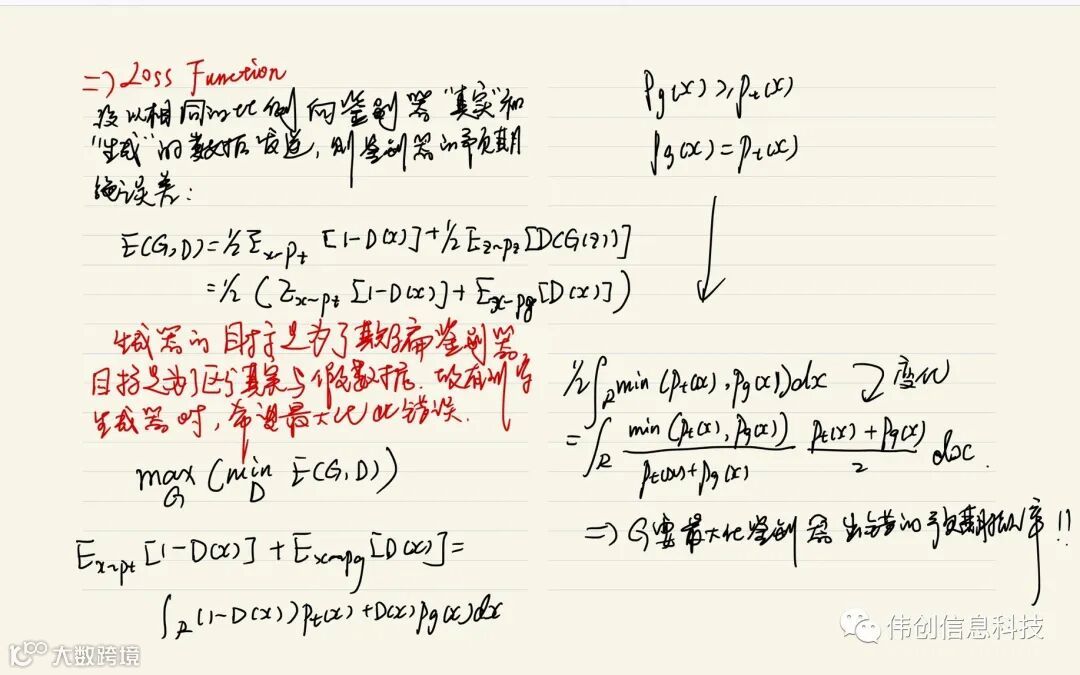 => Loss Function
设以相同的比例向鉴别器"真实"和
"生成"的数据发送,则鉴别器的预期
绝误差:
E(G,D)=½ E_{x~p_t} [1-D(x)]+½ E_{z~p_z}[D(G(z))]
=½ (E_{x~p_t} [1-D(x)]+E_{x~p_g}[D(x)])
生成器的目标是为了欺骗鉴别器
目标是为了区分真实与假数据.故在训练
生成器时,希望最大化此错误.
max_G (min_D E(G,D))
E_{x~p_t} [1-D(x)] + E_{x~p_g}[D(x)]=
∫_R (1-D(x))p_t(x)+D(x)p_g(x)dx
p_g(x)≥p_t(x)
p_g(x)=p_t(x)
½∫_R min(p_t(x),p_g(x))dx 变化
=∫_R \frac{min(p_t(x),p_g(x))}{p_t(x)+p_g(x)} \frac{p_t(x)+p_g(x)}{2} dx.
=> G要最大化鉴别器出错的预期概率!!
伟创信息科技
100 大数跨境